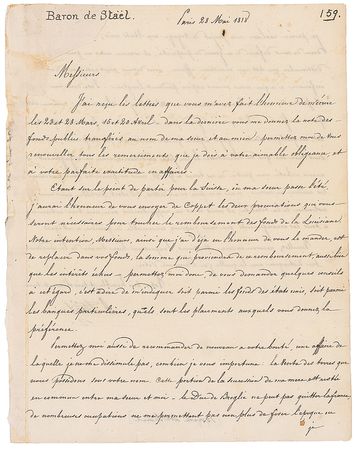 Baron de Staël.
Paris 28 Mai 1818
159.
Messieurs
J'ai reçu les lettres que vous m'avez fait l'honneur de m'écrire
les 23 et 28 Mars, 15 et 20 Avril. dans la dernière vous me donnez la note des
fonds publics transférés au nom de ma sœur et au mien. permettez moi de vous
renouveller tous les remerciemens que je dois à votre aimable obligeance et
à votre parfaite exactitude en affaires.
Etant sur le point de partir pour la Suisse, où ma sœur passe l'été,
j'aurai l'honneur de vous envoyer de Coppet les deux procurations que vous
seront nécessaires pour toucher le remboursement des fonds de la Louisiane.
Notre intention, Messieurs, ainsi que j'ai déjà eu l'honneur de vous le mander, est
de replacer dans vos fonds la somme que proviendra de ce remboursement, aussi bien
que les intérêts échus — permettez moi donc de vous demander quelques conseils
à cet égard, c'est à dire de m'indiquer soit parmi les fonds des états unis, soit parmi
les banques particulières, quels sont les placements auxquels vous donnez la
préférence.
Permettez moi aussi de recommander de nouveau à votre bonté, une affaire de
laquelle je ne me dissimule pas, combien je vous importune. la vente des terres que
nous possédons sous votre nom. Cette portion de la succession de ma mère est restée
en commun entre ma sœur et moi — le Duc de Broglie ne peut pas quitter la france
de nombreuses occupations ne me permettent pas non plus de faire le
je